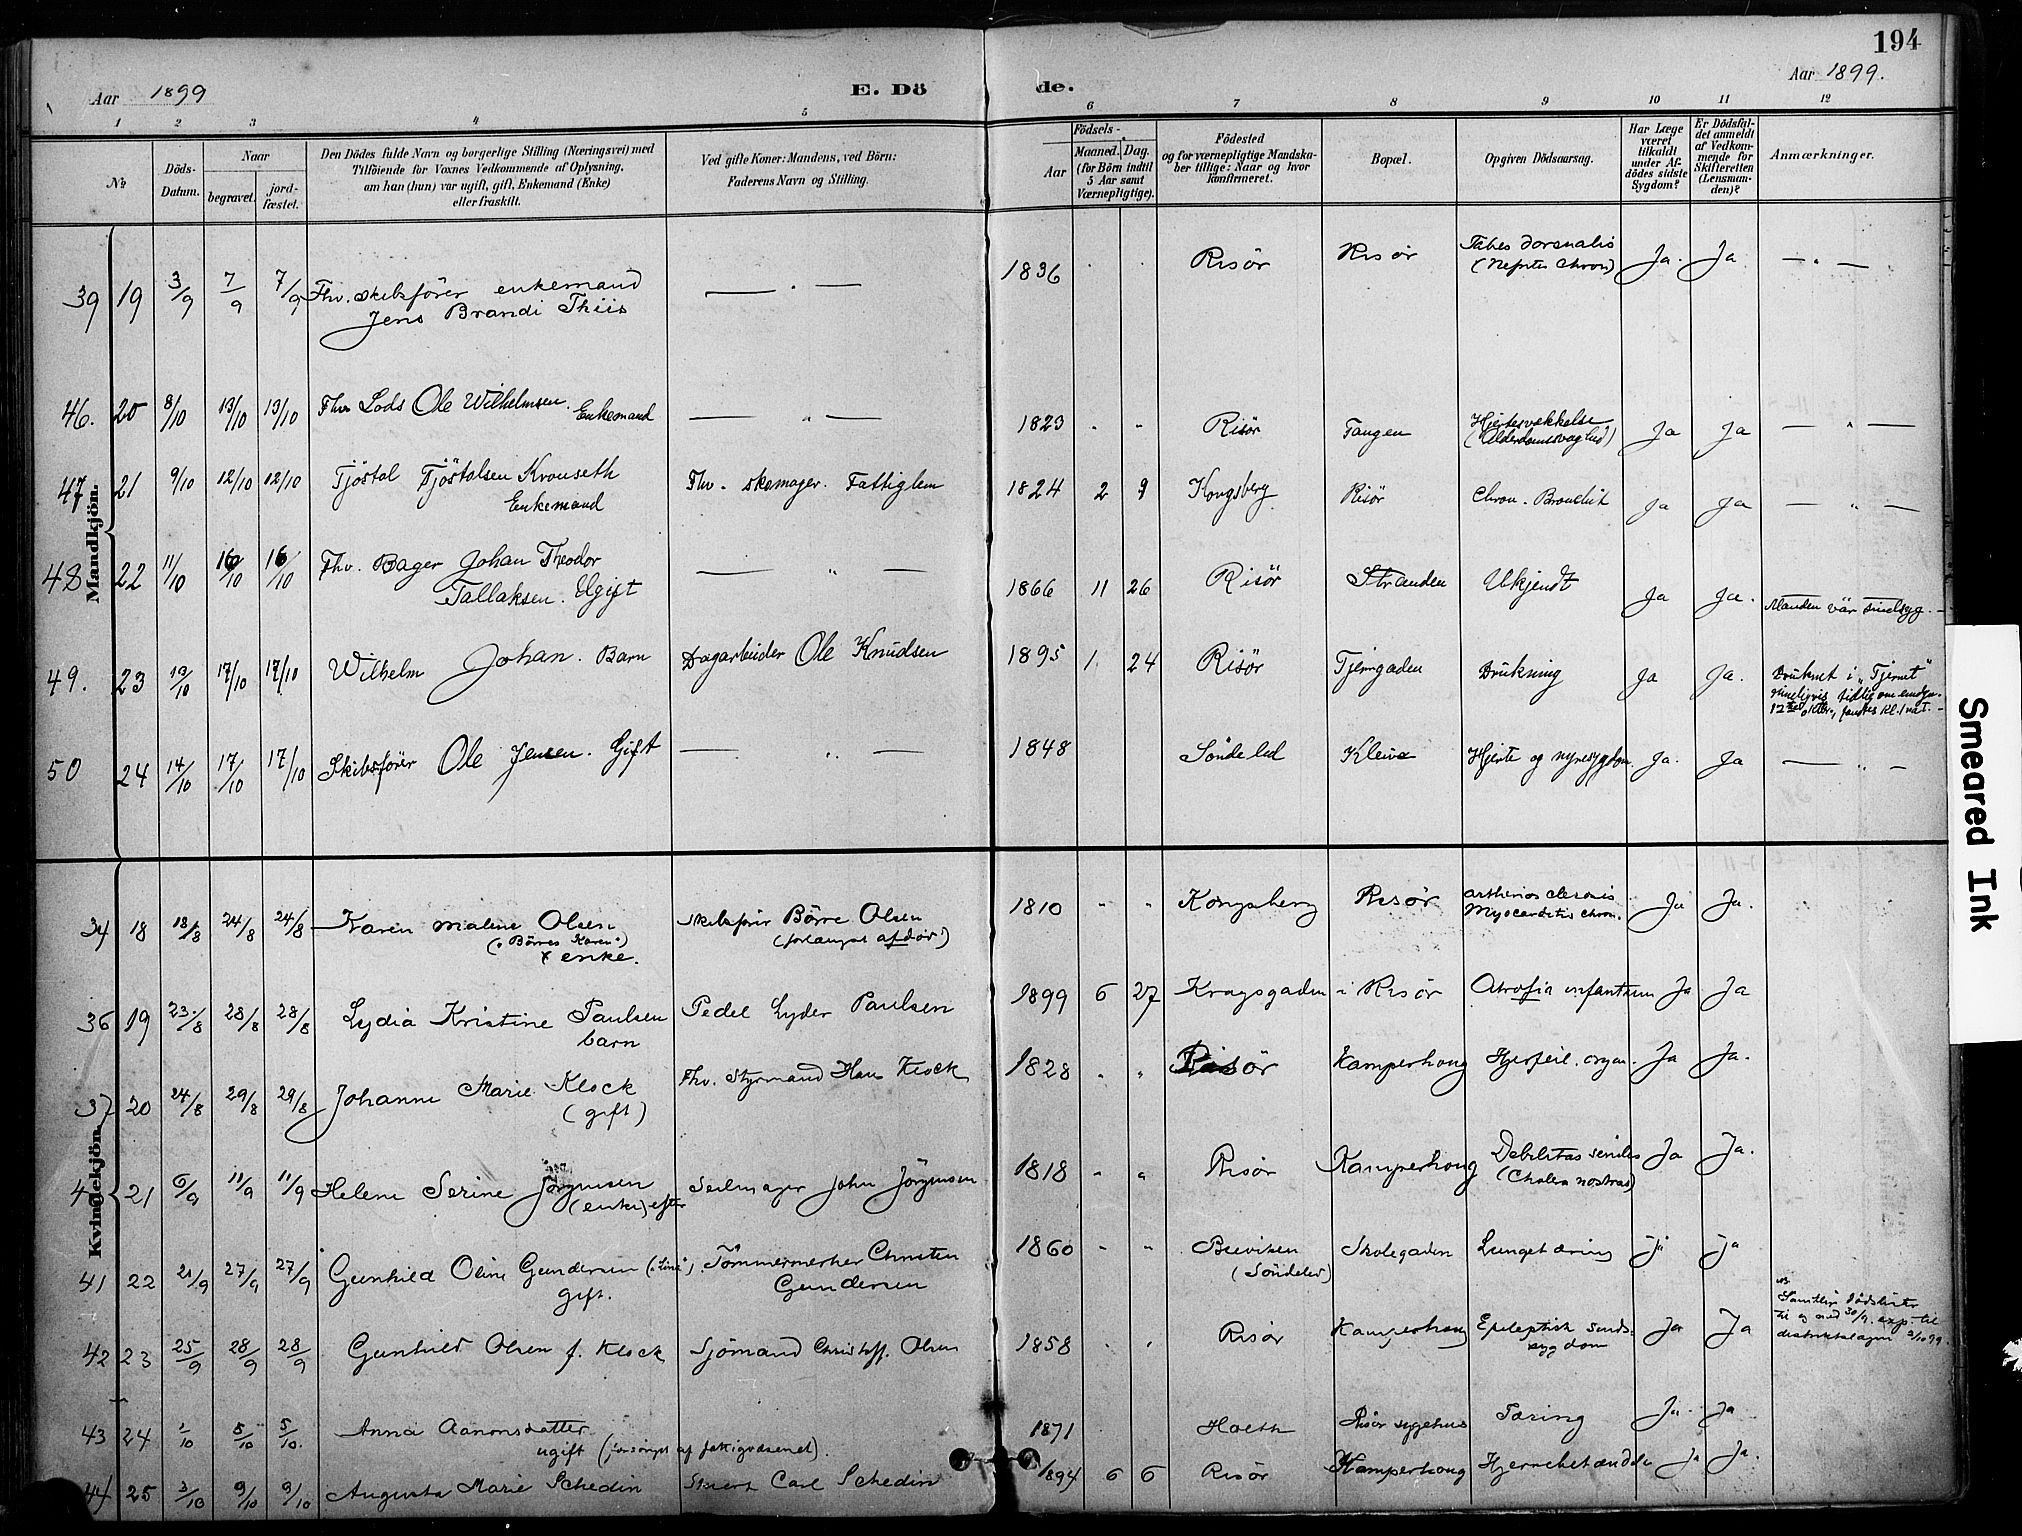 194
Aar 1899
E. Döde.
Aar 1899.
1 2 3 4 5 6 7 8 9 10 11 12
№
Döds-Datum.
Naar
begravet.
jord-fæstet.
Den Dödes fulde Navn og borgerlige Stilling (Næringsvei) med
Tilföiende for Voxnes Vedkommende af Oplysning,
om han (hun) var ugift, gift, Enkemand (Enke)
eller fraskilt.
Ved gifte Koner: Mandens, ved Börn:
Faderens Navn og Stilling.
Födsels-
Aar
Maaned. Dag.
(for Börn indtil
5 Aar samt
Værnepligtige).
Födested
og for værnepligtige Mandska-
ber tillige: Naar og hvor
konfirmeret.
Bopæl.
Opgiven Dödsaarsag.
Har Læge
været
tilkaldt
under Af-
dödes sidste
Sygdom?
Er Dödsfal-
det anmeldt
af Vedkom-
mende for
Skifteretten
(Lensman-
den)?
Anmærkninger.
Mandkjön.
39 19 3/9 7/9 7/9 Fhv. skibsfører enkemand — " — 1836 Risør Risør Tabes dorsualis Ja. Ja — " —
Jens Brandi Thiis
46. 20 8/10 13/10 13/10 Fhv Lods Ole Wilhelmsen. Enkemand — " — 1823 " " Risör Tangen Hjertesvækkelse Ja Ja — " —
(Alderdomssvaghed)
47 21 9/10 12/10 12/10 Tjöstol Tjöstolsen Fhv. skomager. Fattiglem 1824 2 9 Kongsberg Risör Chron. Bronchit Ja Ja — " —
Enkemand
48 22 11/10 16/10 16/10 Fhv. Bager Johan Theodor — " — 1866 11 26 Risör Stranden Ukjendt Ja Ja. Manden vär sindsyg. —
Tallaksen. Ugift
49. 23 17/10 17/10 Wilhelm Johan. Barn Dagarbeider Ole Knudsen 1895 1 24 Risör Tjerngaden Drukning Ja Ja. Druknet i "Tjernet"
50 24 14/10 17/10 17/10 Skibsfører Ole Jensen. Gift — " — 1848 Söndeled Kleiva Hjerte og nyresygdom. Ja. Ja — " —
Kvindekjön.
34 18 18/8 24/8 24/8 Karen Malene Olsen Skibsfører Börre Olsen 1810 " " Kongsberg Risør Ja Ja.
("Börres Karen")
enke.
(forlængst afdød)
Myocarditis chron.
36 19 23/8 28/8 28/8 Lydia Kristine Paulsen Pedel Lyder Paulsen 1899 6 27 Kragsgaden i Risør Atrofia infantum Ja Ja
barn
37 20 24/8 29/8 29/8 Johanne Marie Klock Fhv. Styrmand Hans Klock 1828 " " Risør Kamperhoug Hjerfeil. organ. Ja Ja.
(gift)
4 21 6/9 11/9 11/9 Helene Serine Jörgensen Seilmager John Jörgensen 1818 " " Risør Kamperhoug Debilitas senilis Ja Ja.
(enke) efter
(Cholera nostras)
41 22 21/9 27/9 27/9 Gunhild Oline Gundersen ("Lina"). Tömmermerker Christen 1860 " " Beviken Skolegaden Lungetæring Ja Ja
gift.
Gundersen
(Söndeled)
42 23 25/9 28/9 28/9 Gunhild Olsen f. Klock Sjömand Christoff. Olsen 1858 " " Risør Kamperhoug Epileptisk sinds- Ja Ja
sygdom
43 24 1/10 5/10 5/10. Anna Aanonsdatter 1871 Holth Risør sygehus Tæring Ja. Ja
ugift (forsørget af fattigvæsenet).
44 25 3/10 9/10 9/10 Augusta Marie Schedin Carl Schedin 1894 6 6 Risør Kamperhoug Ja Ja.
Smeared Ink